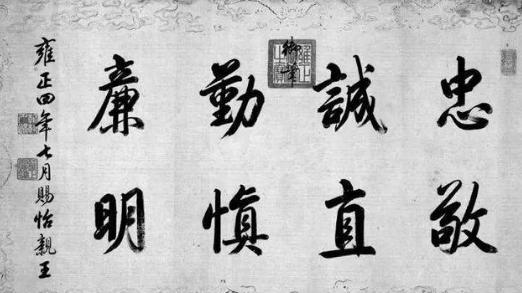 忠敬
誠直
勤慎
廉明
御筆
雍正四年七月賜怡親王